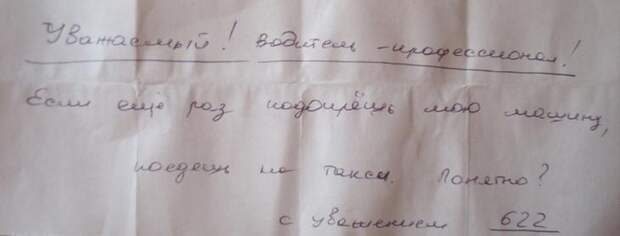 Уважаемый! Водитель - профессионал!
Если ещё раз подопрёшь мою машину,
поедешь на такси. Понятно?
с уважением 622